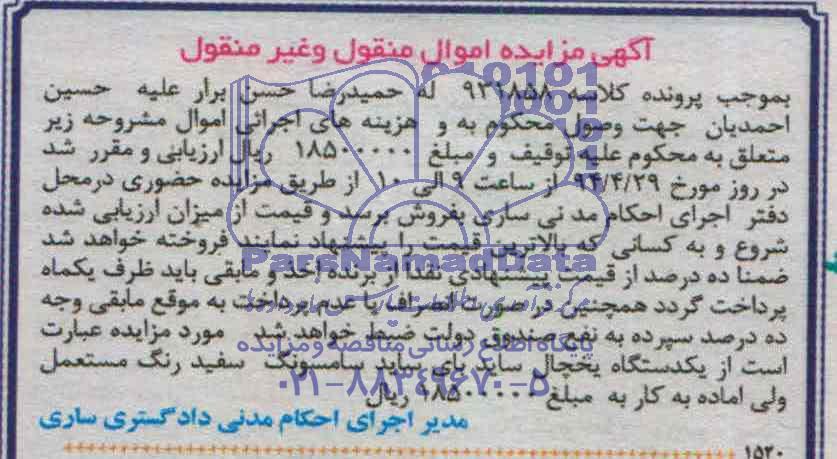 آگهی مزایده اموال منقول وغیر منقول
بموجب پرونده کلاسه ۹۳۱۸۵۸ له حمیدرضا حسن برار علیه حسین
احمدیان جهت وصول محکوم به و هزینه های اجرائی اموال مشروحه زیر
متعلق به محکوم علیه توقیف و مبلغ ۱۸۵۰۰۰۰۰ ریال ارزیابی و مقرر شد
در روز مورخ ۹۴/۴/۲۹ از ساعت ۹ الی ۱۰ از طریق مزایده حضوری درمحل
دفتر اجرای احکام مد نی ساری بفروش برسد و قیمت از میزان ارزیابی شده
شروع و به کسانی که بالاترین قیمت را پیشنهاد نمایند فروخته خواهد شد
ضمنا ده درصد از قیمت پیشنهادی نقدا از برنده اخذ و مابقی باید ظرف یکماه
پرداخت گردد همچنین در صورت انصراف یا عدم پرداخت به موقع مابقی وجه
ده درصد سپرده به نفع صندوق دولت ضبط خواهد شد مورد مزایده عبارت
است از یکدستگاه یخچال ساید بای ساید سامسونگ سفید رنگ مستعمل
ولی اماده به کار به مبلغ ۱۸۵۰۰۰۰۰ ریال
مدیر اجرای احکام مدنی دادگستری ساری
۱۵۲۰
ParsNamadData
پایگاه اطلاع رسانی مناقصه و مزایده
۰۲۱-۸۸۳۴۹۶۷۰-۵